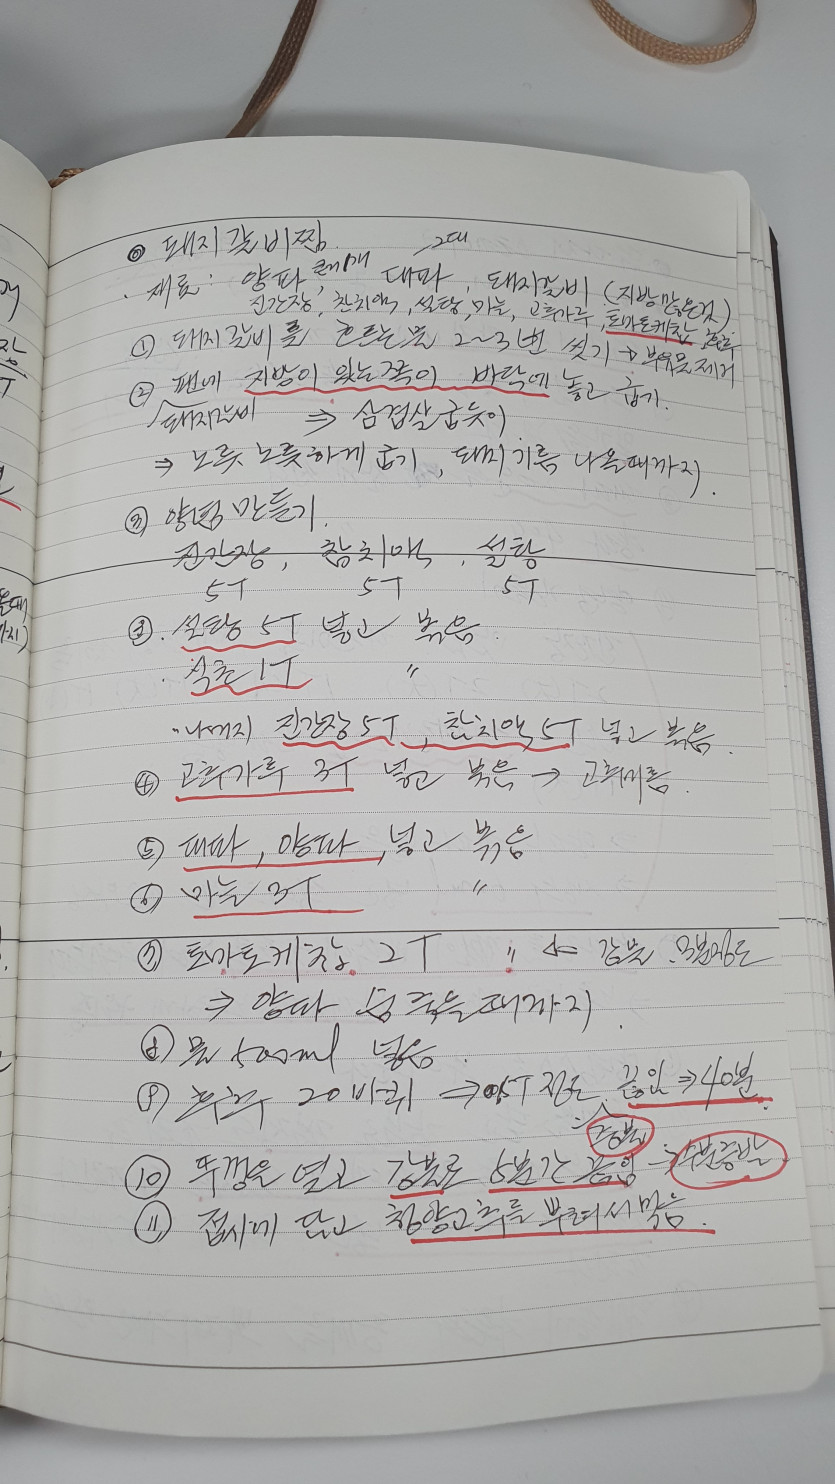 ◎ 돼지갈비찜
· 재료: 양파 큰거1개, 대파 2대, 돼지갈비 (지방많은것)
진간장, 참치액, 설탕, 마늘, 고춧가루, 토마토케찹, 후추
① 돼지갈비를 흐르는 물 2~3번 씻기 → 불순물 제거
② 팬에 지방이 있는쪽이 바닥에 놓고 굽기.
돼지갈비 ⇒ 삼겹살 굽듯이
⇒ 노릇노릇하게 굽기, 돼지기름 나올때까지.
③ 양념 만들기.
진간장, 참치액, 설탕
5T 5T 5T
③. 설탕 5T 넣고 볶음.
· 식초 1T 〃
· 나머지 진간장 5T, 참치액 5T 넣고 볶음.
④ 고춧가루 3T 넣고 볶음 → 고추기름.
⑤ 대파, 양파, 넣고 볶음
⑥ 마늘 3T 〃
⑦ 토마토케찹 2T 〃 ← 감칠
⇒ 양파 숨 죽을때까지.
⑧ 물 500ml 넣음.
⑨ 후추 20바퀴 → 0.5T 정도. 끓임 ⇒ 40분.
중불
⑩ 뚜껑을 열고 강불로 5분간 끓임 → 수분증발
⑪ 접시에 담고 청양고추를 뿌려서 먹음.